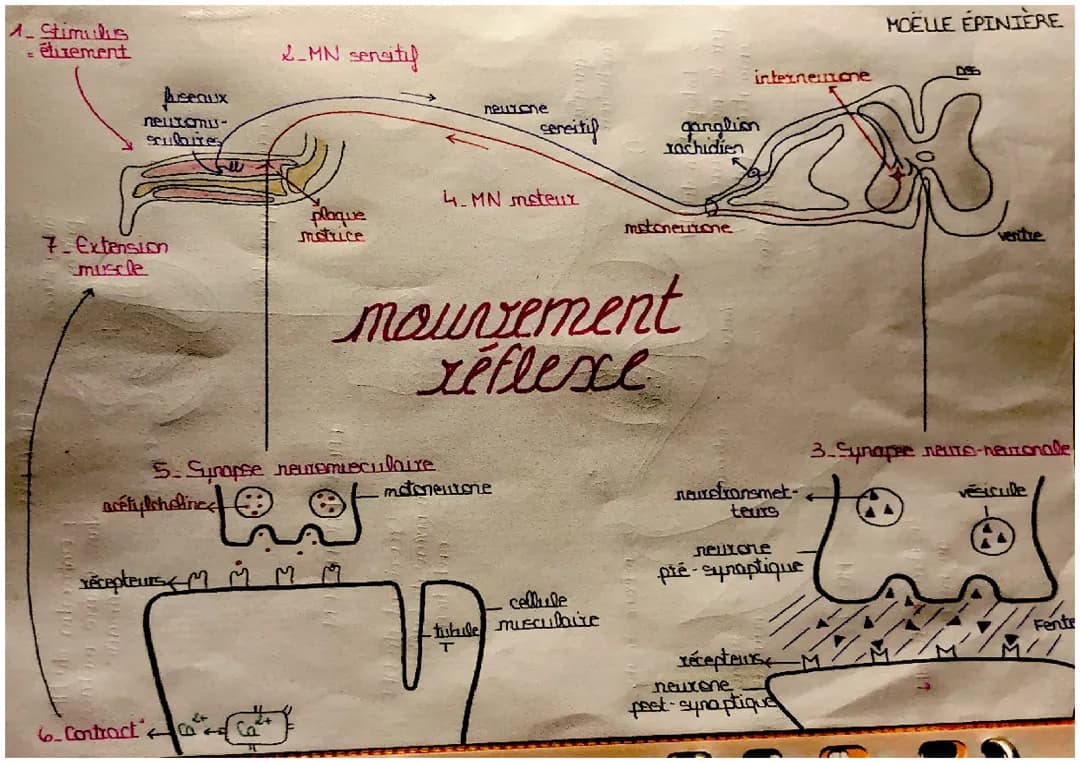 MOËLLE ÉPINIÈRE
1_ Stimulus
= étirement
2_MN sensitif
fuseaux
neuromu-
sculaires
neurone
sensitif
interneurone
DOS
ganglion
rachidien
4_MN moteur
plaque
motrice
motoneurone
ventre
7_Extension
muscle
mouvement
réflexe
5_Synapse neuromusculaire
acétylcholine
motoneurone
récepteurs
cellule
musculaire
tubule
T
6_Contract°
Ca2+
Ca2+
3_Synapse neuro-neuronale
neurotransmet-
teurs
vésicule
neurone
pré-synaptique
Fente
récepteurs
neurone
post-synaptique